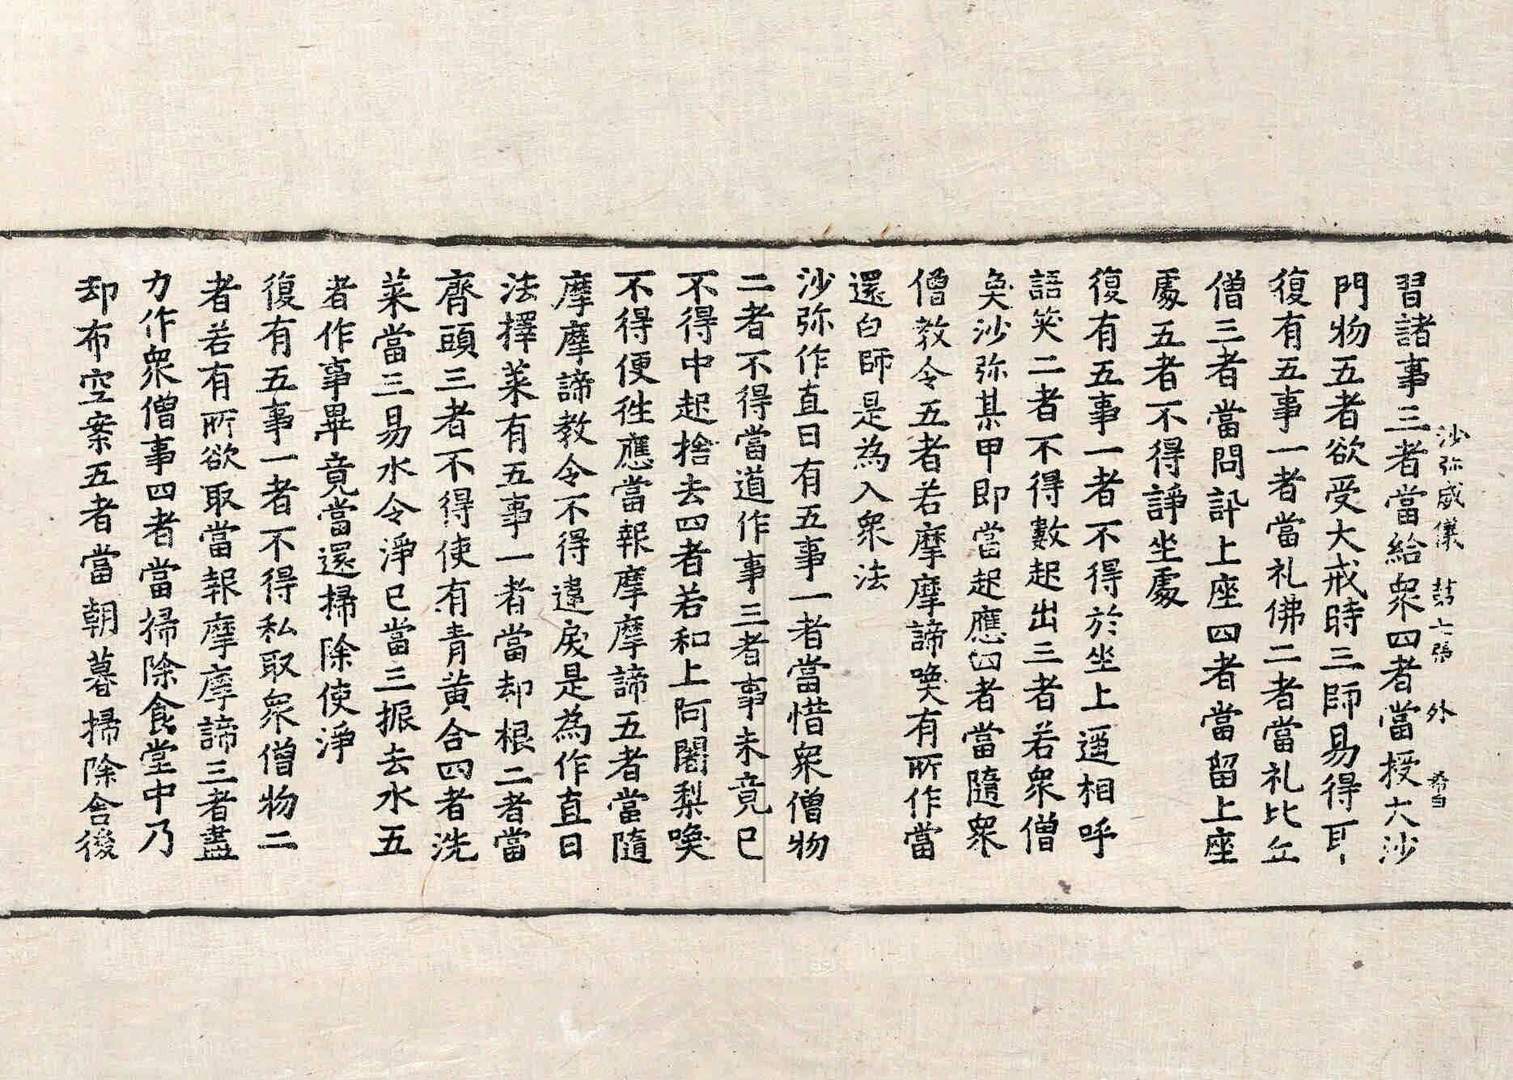 沙弥威儀　苐七張　外　希白
習諸事三者當給衆四者當授大沙
門物五者欲受大戒時三師易得耳
復有五事一者當礼佛二者當礼比丘
僧三者當問訊上座四者當留上座
處五者不得諍坐處
復有五事一者不得於坐上遥相呼
語笑二者不得數起出三者若衆僧
奐沙弥某甲即當起應四者當隨衆
僧教令五者若摩摩諦喚有所作當
還白師是為入衆法
沙弥作直日有五事一者當惜衆僧物
二者不得當道作事三者事未竟已
不得中起捨去四者若和上阿闍梨喚
不得便徃應當報摩摩諦五者當隨
摩摩諦教令不得違戾是為作直日
法擇菜有五事一者當却根二者當
齊頭三者不得使有青黃合四者洗
菜當三易水令淨已當三振去水五
者作事畢竟當還掃除使淨
復有五事一者不得私取衆僧物二
者若有所欲取當報摩摩諦三者盡
力作衆僧事四者當掃除食堂中乃
却布空案五者當朝暮掃除舍後